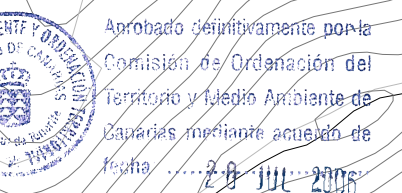 Aprobado definitivamente por la
Comisión de Ordenación del
Territorio y Medio Ambiente de
Canarias mediante acuerdo de
fecha ........ 20 JUL 2006